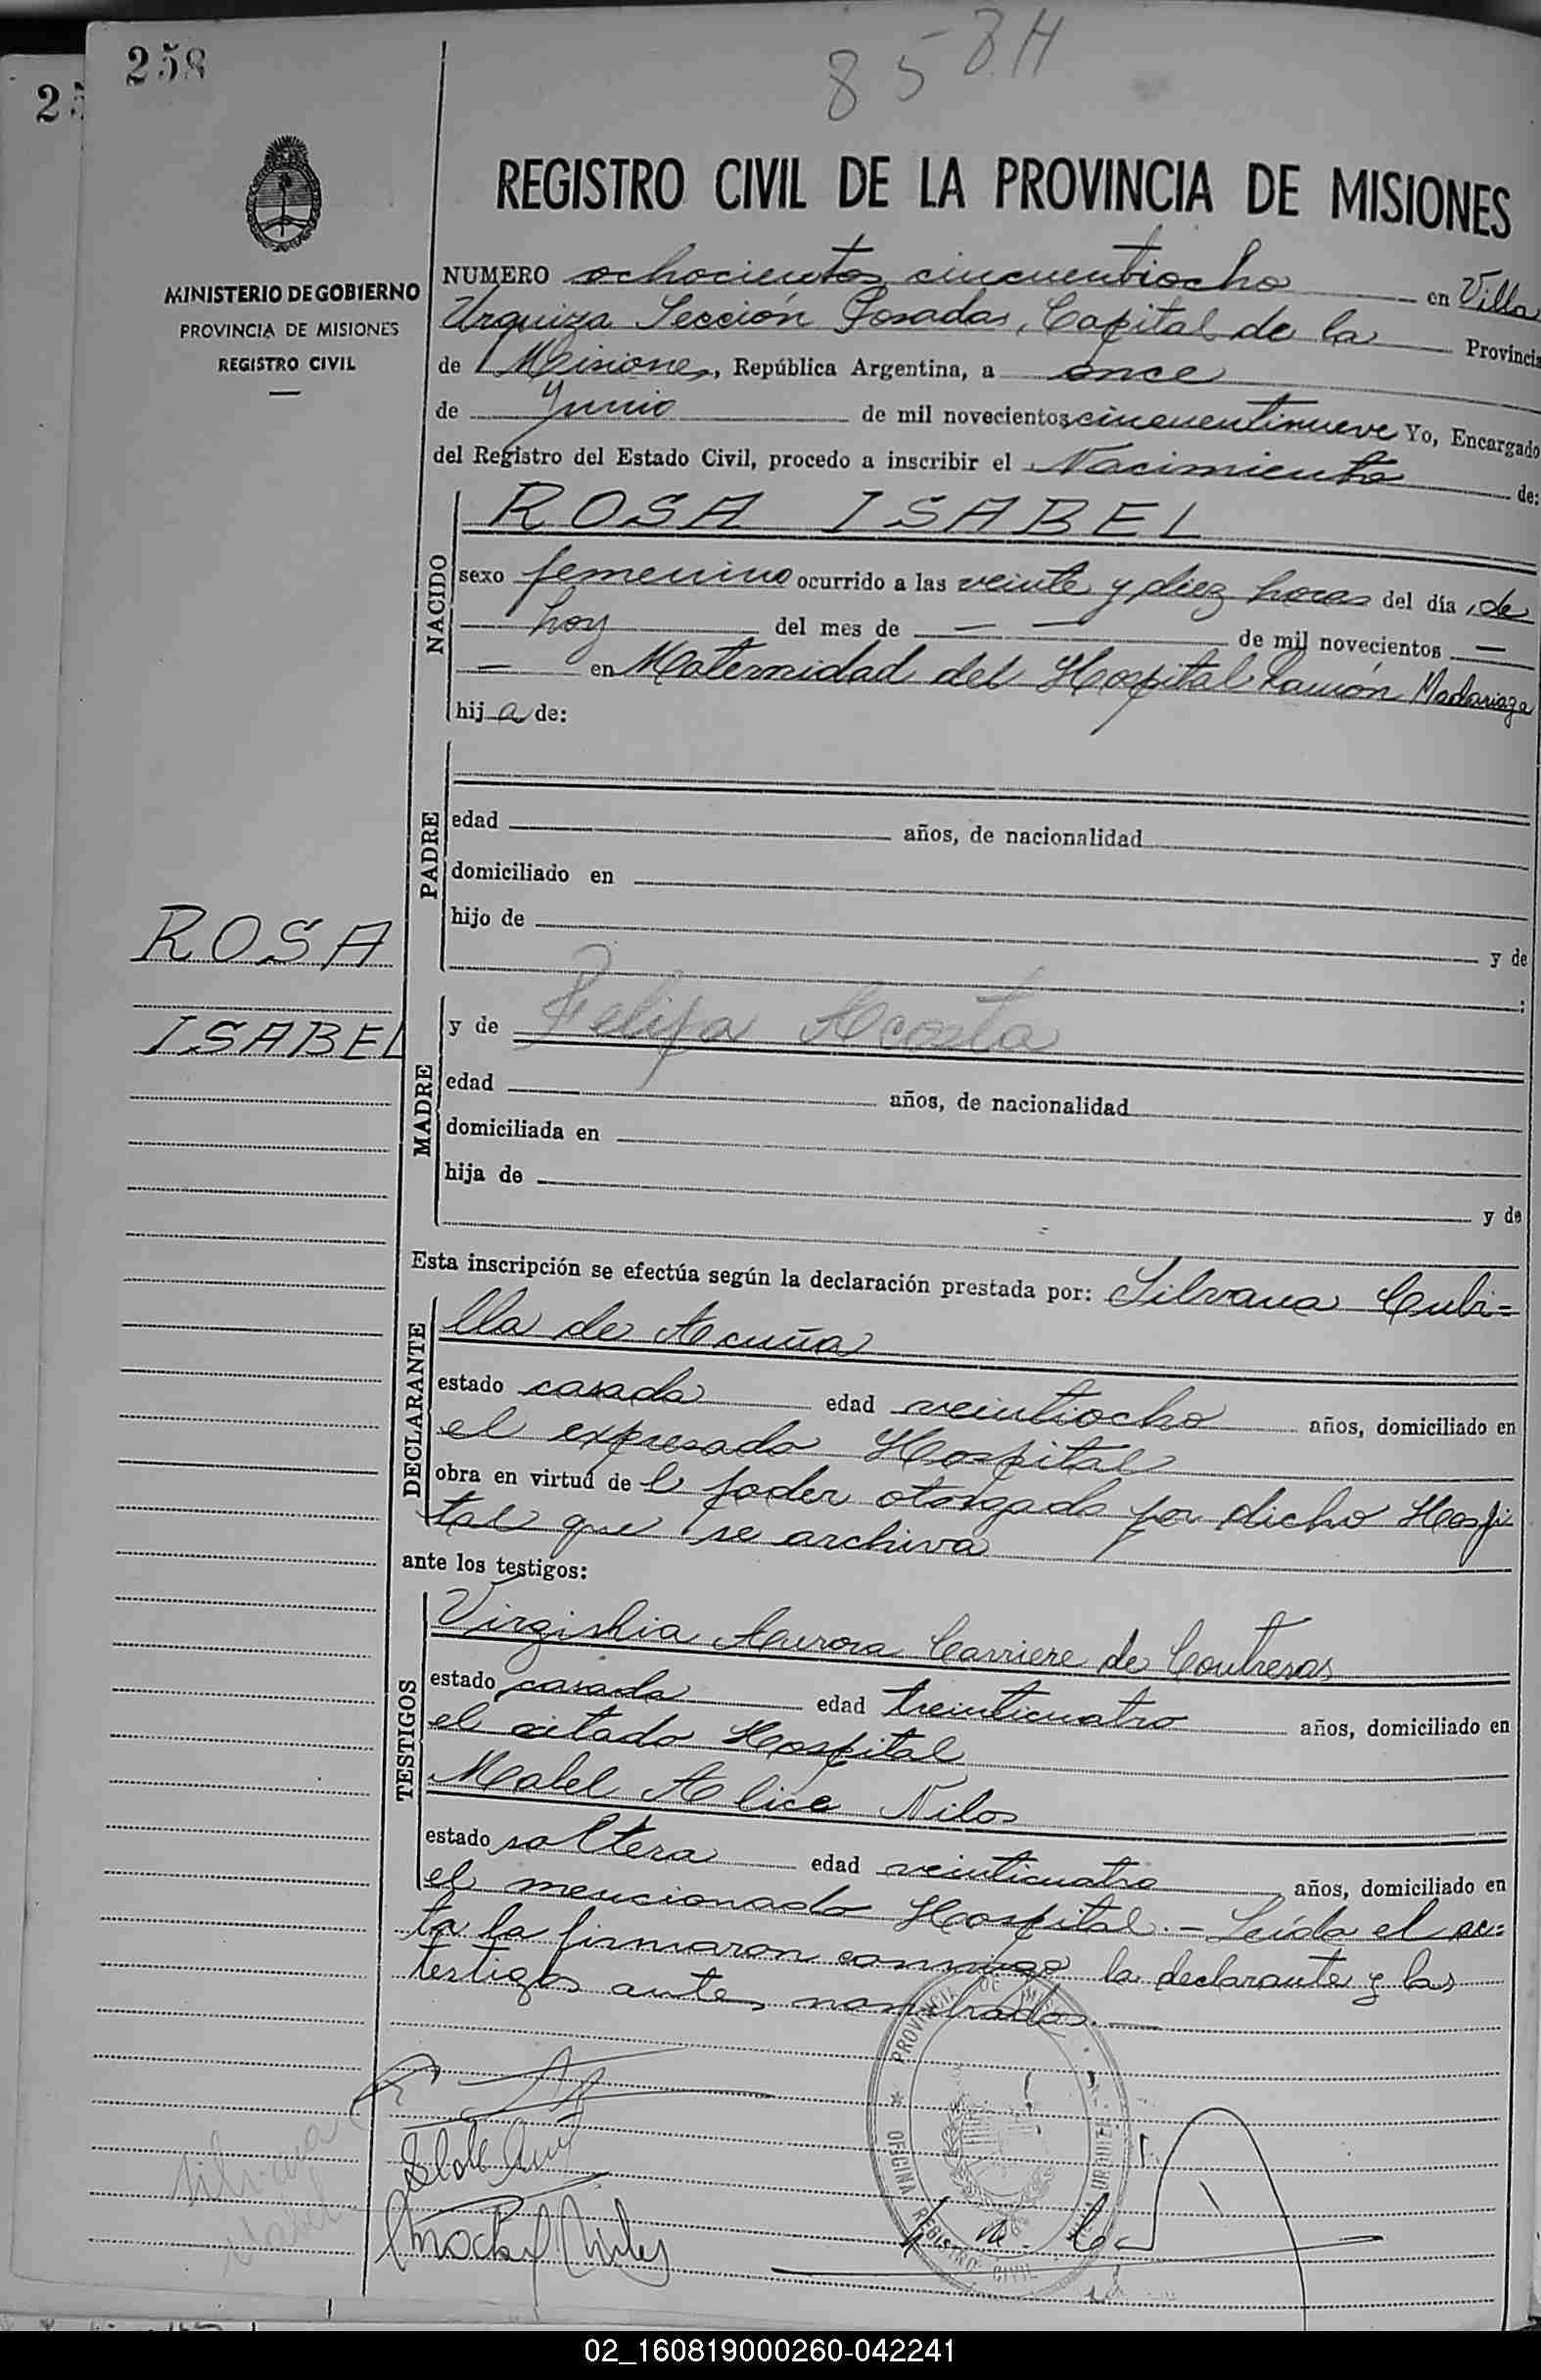 258
858H
MINISTERIO DE GOBIERNO
PROVINCIA DE MISIONES
REGISTRO CIVIL
REGISTRO CIVIL DE LA PROVINCIA DE MISIONES
NUMERO ochocientos cincuentiocho en Villa
Urquiza Sección Posadas, Capital de la Provincia
de Misiones, República Argentina, a once
de Junio de mil novecientos cincuentinueve Yo, Encargado
del Registro del Estado Civil, procedo a inscribir el Nacimiento de:
NACIDO
ROSA ISABEL
sexo femenino ocurrido a las veinte y diez horas del día de
hoy del mes de — — de mil novecientos —
— en Maternidad del Hospital Ramón Madariaga
hij a de:
PADRE
edad años, de nacionalidad
domiciliado en
hijo de y de
:
ROSA
ISABEL
MADRE
y de Felipa Acosta
edad años, de nacionalidad
domiciliada en
hija de y de
Esta inscripción se efectúa según la declaración prestada por: Silvana Cubi=
DECLARANTE
lla de Acuña
estado casada edad veintiocho años, domiciliado en
el expresado Hospital
obra en virtud de l poder otorgado por dicho Hospi
tal que se archiva
ante los testigos:
TESTIGOS
Virginia Aurora Carriere de Contreras
estado casada edad treinticuatro años, domiciliado en
el citado Hospital
Mabel Alice Nilos
estado soltera edad veinticuatro años, domiciliado en
el mencionado Hospital.- Leída el ac=
ta la firmaron conmigo la declarante y las
testigos antes nombradas.—
PROVINCIA DE MISIONES
OFICINA REGISTRO CIVIL
URQUIZA
Silvana
Mabel
02_160819000260-042241